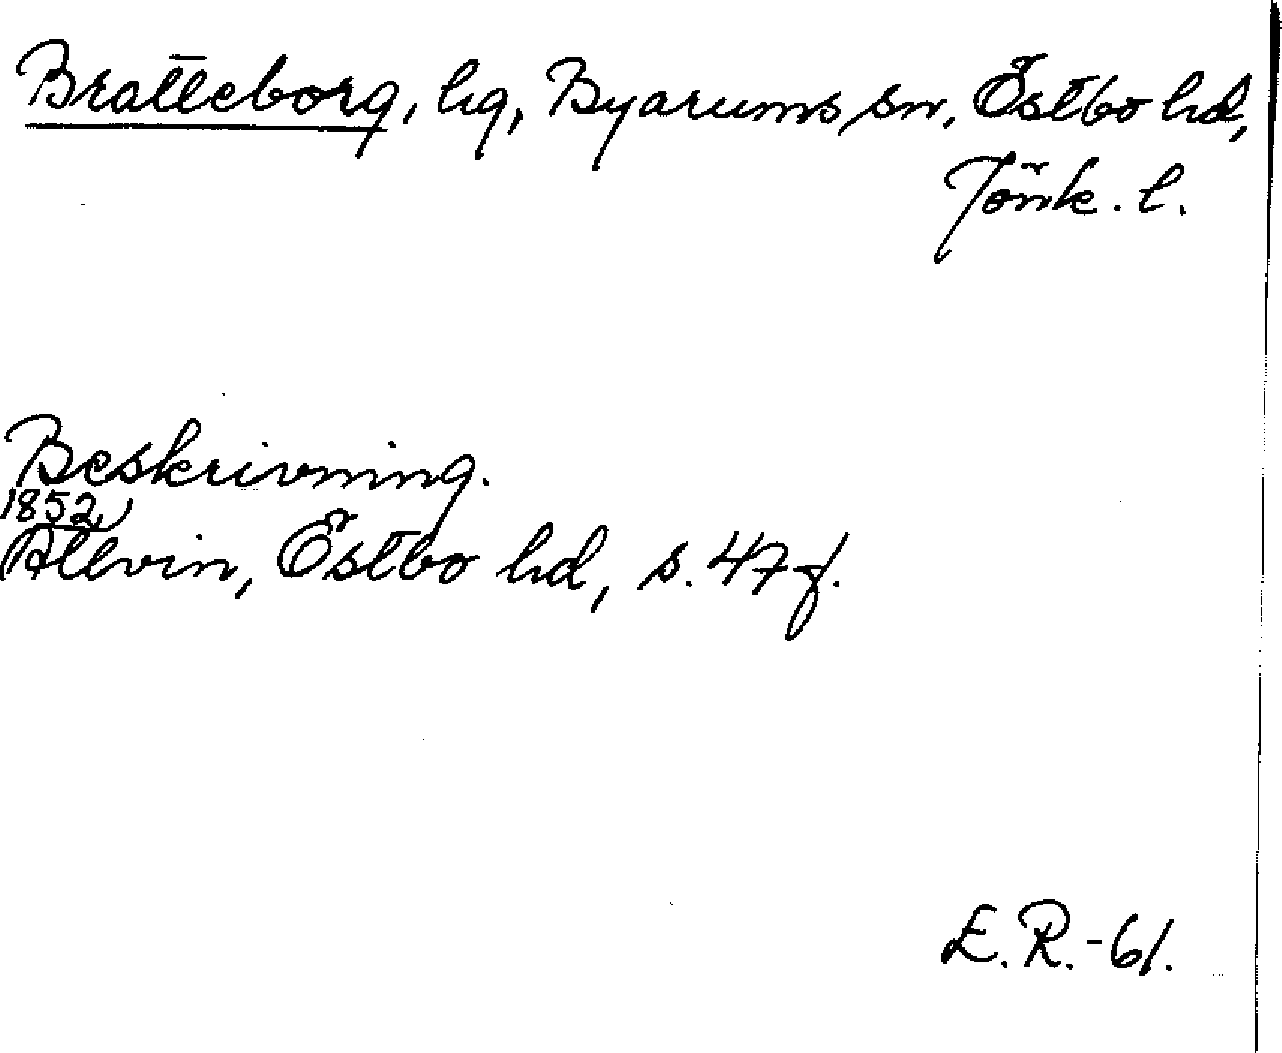 Bratteborg, hg, Byarums sn, Östbo hd,
Jönk. l.
Beskrivning.
1852,
Allvin, Östbo hd, s. 47 f.
E.R.-61.